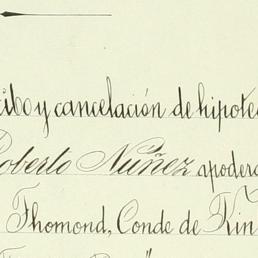 cibo y cancelación de hipote
Roberto Núñez apodera
Thomond, Conde de Kin